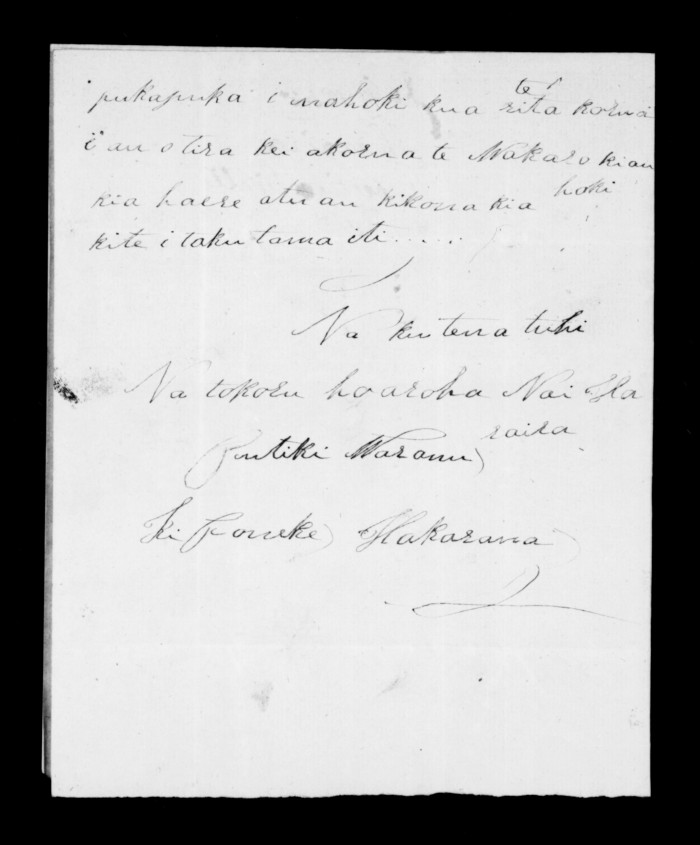 pukapuka i nahoki kua te rita korua
i au otira kei akorua te Wakaro kiau
kia haere atu au kikona kia hoki
kite i taku tama iti.....
Na ku tena tuhi
Na tokoru hoaroha Nai Ha
raira
Putiki Waranui
Ki Poneke Hakarana